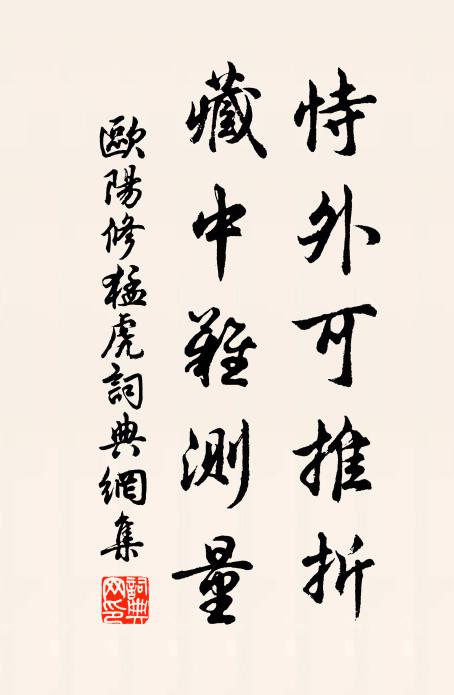 恃外可推折
藏中難測量
歐陽修猛虎詞典網集
詞典網印